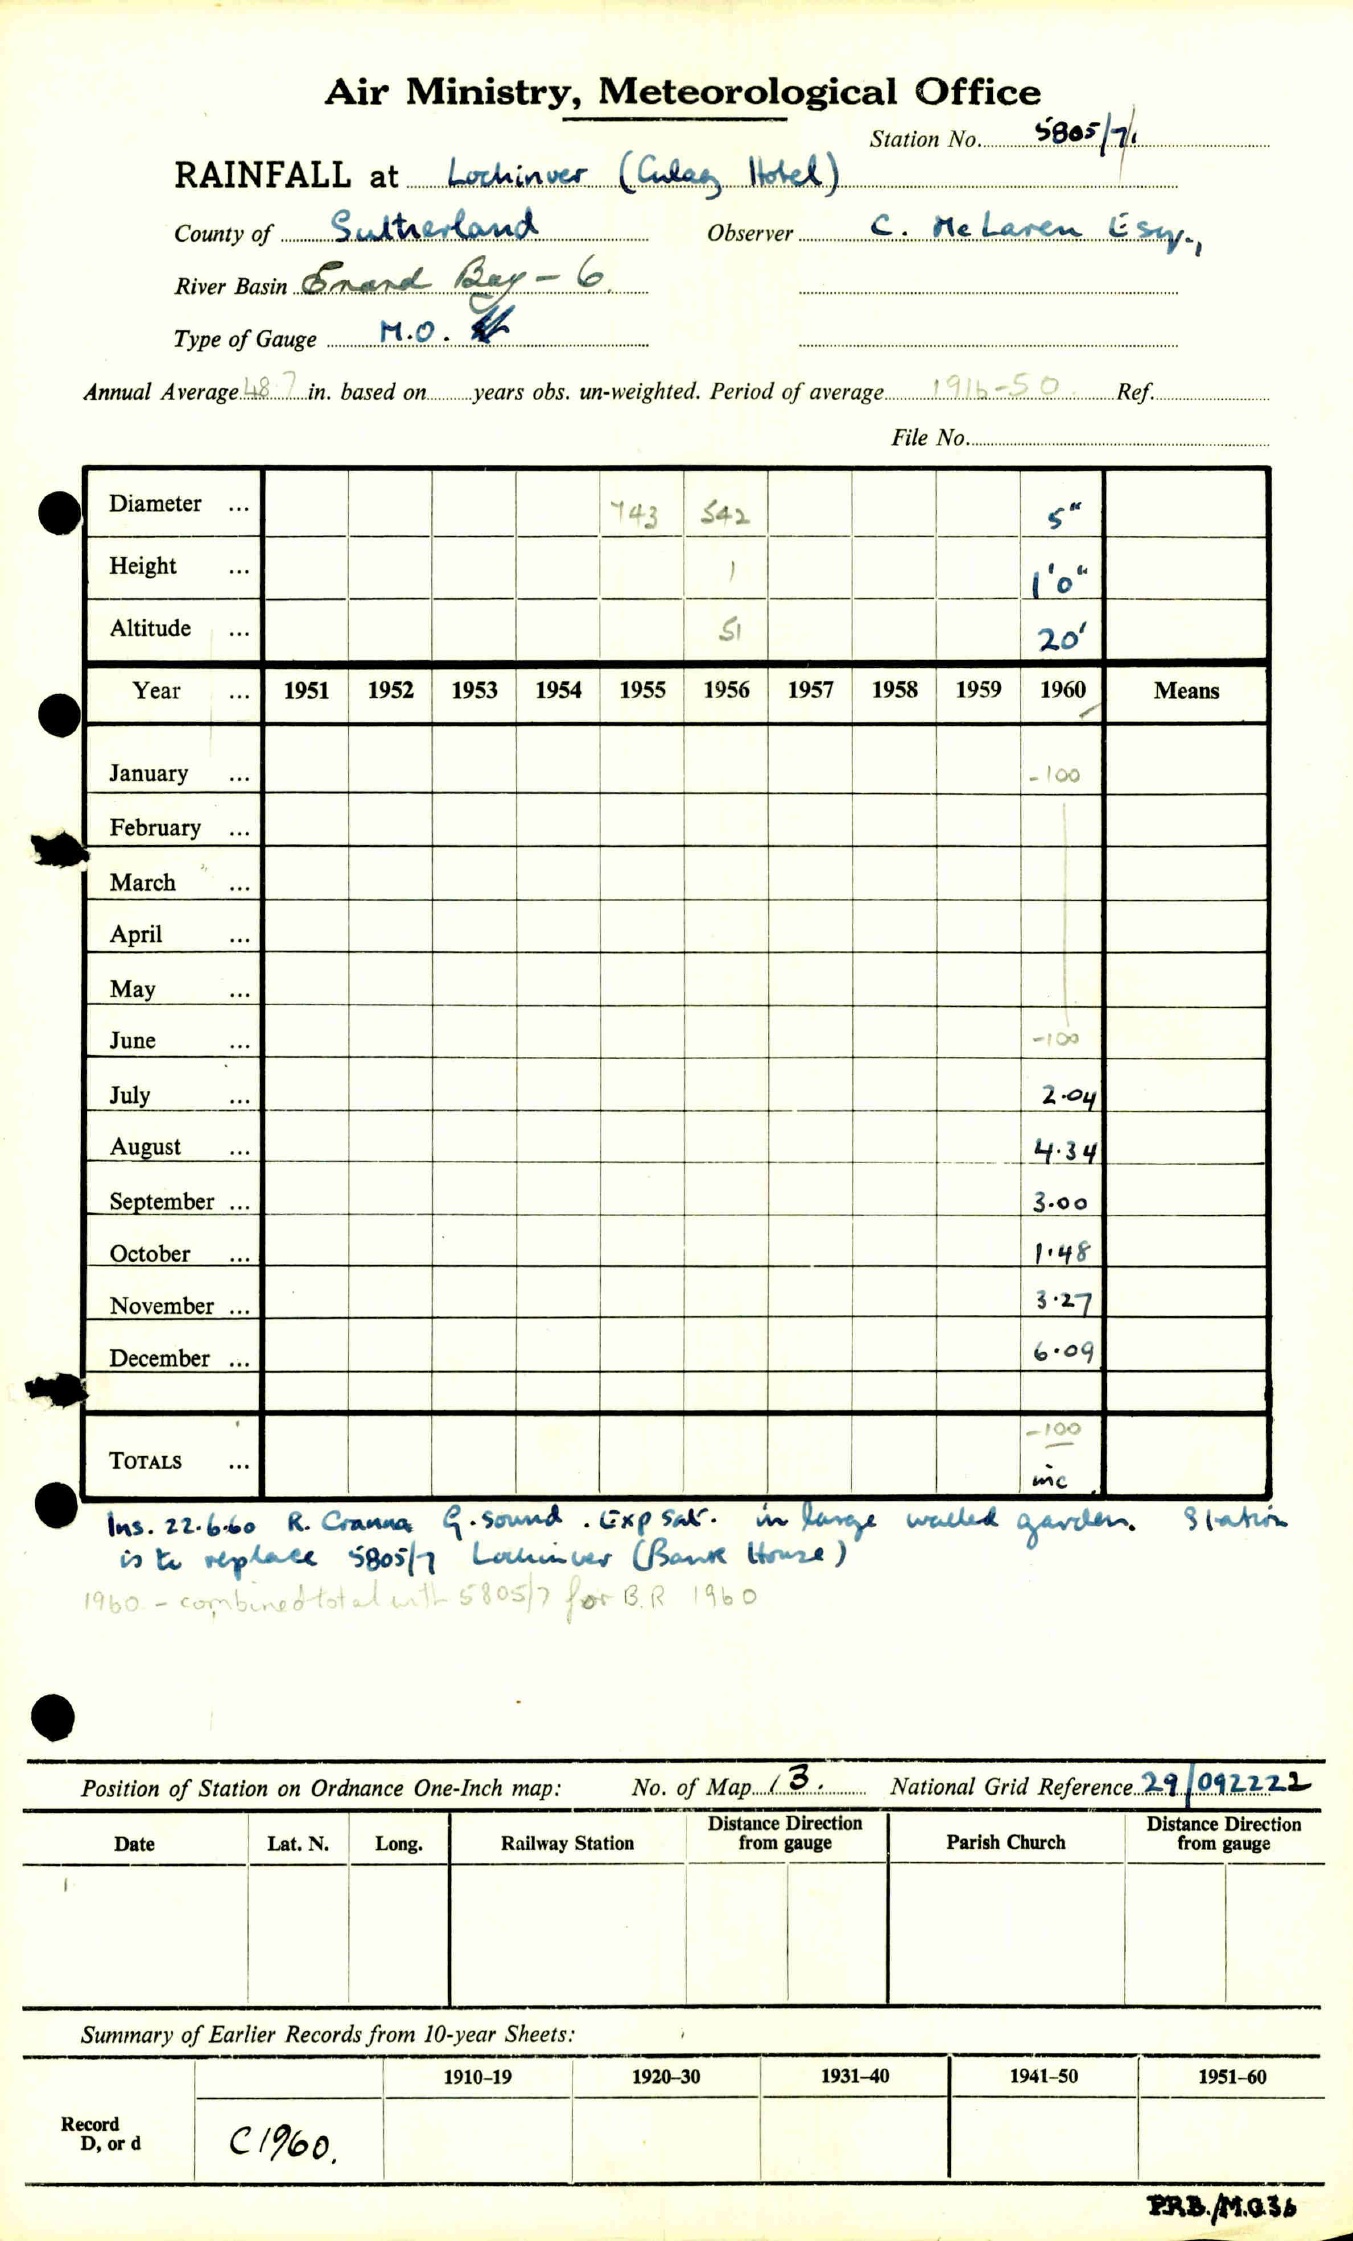 Air Ministry, Meteorological Office
Station No. 5805/7/1
RAINFALL at Lochinver (Culag Hotel)
County of Sutherland Observer C. McLaren Esq.,
River Basin Enard Bay - 6
Type of Gauge M.O.
Annual Average 48.7 in. based on years obs. un-weighted. Period of average 1916-50 Ref.
File No.
Diameter ... 743 542 5"
Height ... 1 1'0"
Altitude ... 51 20'
Year ... 1951 1952 1953 1954 1955 1956 1957 1958 1959 1960 Means
January ... -100
February ...
March ...
April ...
May ...
June ... -100
July ... 2.04
August ... 4.34
September ... 3.00
October ... 1.48
November ... 3.27
December ... 6.09
-100
TOTALS ... inc.
Ins. 22.6.60 R. Cranna G. sound. Exp sat. in large walled garden. Station
is to replace 5805/7 Lochinver (Bank House)
1960 - combined total with 5805/7 for B.R 1960
Position of Station on Ordnance One-Inch map: No. of Map 13. National Grid Reference 29/092222
Date Lat. N. Long. Railway Station Distance Direction from gauge Parish Church Distance Direction from gauge
Summary of Earlier Records from 10-year Sheets:
1910–19 1920–30 1931–40 1941–50 1951–60
Record
D, or d C1960.
P.R.B./M.O.36